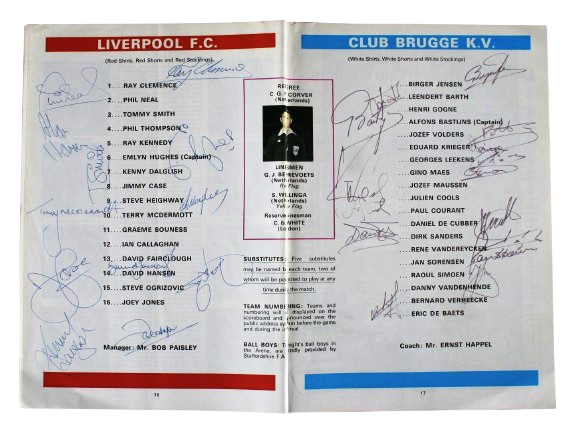 LIVERPOOL F.C.
(Red Shirts, Red Shorts and Red Stockings)
1 ... RAY CLEMENCE
2 ... PHIL NEAL
3 ... TOMMY SMITH
4 ... PHIL THOMPSON
5 ... RAY KENNEDY
6 ... EMLYN HUGHES (Captain)
7 ... KENNY DALGLISH
8 ... JIMMY CASE
9 ... STEVE HEIGHWAY
10 ... TERRY McDERMOTT
11 ... GRAEME SOUNESS
12 ... IAN CALLAGHAN
13 ... DAVID FAIRCLOUGH
14 ... DAVID HANSEN
15 ... STEVE OGRIZOVIC
16 ... JOEY JONES
Manager: Mr. BOB PAISLEY
16
REFREE
C. G. CORVER
(Netherlands)
LINESMEN
G. J. BENEVOETS
(Netherlands)
Red Flag
S. WILLINGA
(Netherlands)
Yellow Flag
Reserve linesman
C. B. WHITE
(London)
SUBSTITUTES: Five substitutes
may be named by each team, two of
whom will be permitted to play at any
time during the match.
TEAM NUMBERING: Teams and
numbering will be displayed on the
scoreboard and announced over the
public address system before the game
and during the interval
BALL BOYS: Tonight's ball boys in
the Arena, are kindly provided by
Staffordshire F.A.
CLUB BRUGGE K.V.
(White Shirts, White Shorts and White Stockings)
... BIRGER JENSEN
... LEENDERT BARTH
HENRI GOGNE
... ALFONS BASTIJNS (Captain)
... JOZEF VOLDERS
... EDUARD KRIEGER
... GEORGES LEEKENS
... GINO MAES
... JOZEF MAUSSEN
... JULIEN COOLS
... PAUL COURANT
... DANIEL DE CUBBER
... DIRK SANDERS
... RENE VANDEREYCKEN
... JAN SORENSEN
... RAOUL SIMOEN
... DANNY VANDENHENDE
... BERNARD VERHEECKE
... ERIC DE BAETS
Coach: Mr. ERNST HAPPEL
17